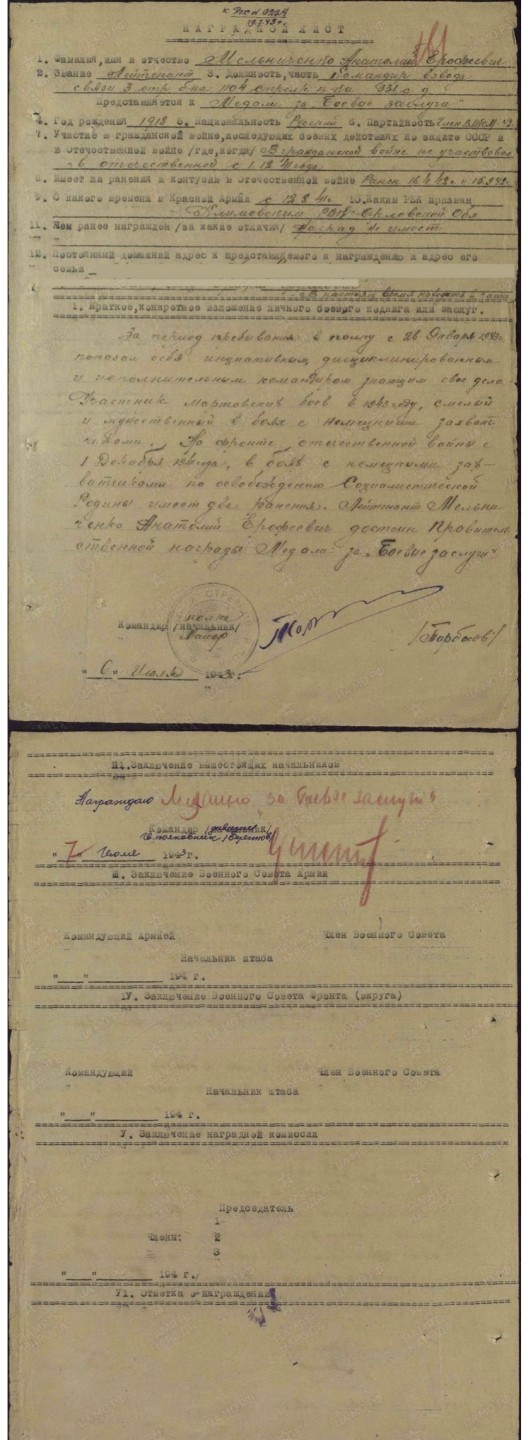 НАГРАДНОЙ ЛИСТ
1. Фамилия, имя и отчество Мельниченко Анатолий Ерофеевич
2. Звание Лейтенант 3. Должность, часть Командир взвода
связи 3 стр б-на 1104 стрелк п-ка
Представляется к Медали за "Боевые заслуги"
4. Год рождения 1918 5. национальность Русский 6. Партийность
7. Участие в гражданской войне, последующих боевых действиях по защите СССР и
в отечественной войне /где, когда/ В гражданской войне не участвовал
в отечественной с 1.12
8. Имеет ли ранения и контузии в отечественной войне Ранен 16.4.42г. и
9. С какого времени в Красной Армии с 12.8.41г. 10. Каким РВК призван
Климовским РВК Орловской Обл
11. Чем ранее награжден /за какие отличия/ Наград не имеет
12. Постоянный домашний адрес к представляемого к награждению и адрес его
семьи
1. Краткое, конкретное изложение личного боевого подвига или заслуг.
За период пребывания в полку с 26 Января 1943г.
показал себя инициативным дисциплинированным
и исполнительным командиром знающим свое дело
Участник мартовских боев в 1943 году, смелый
и мужественный в боях с немецкими захват
чиками. На фронте отечественной войны с
1 Декабря года, в боях с немецкими зах-
ватчиками по освобождению Социалистической
Родины имеет два ранения. Лейтенант Мельни
ченко Анатолий Ерофеевич достоин Правитель
ственной награды Медали за "Боевые заслуги"
полка
Командир /начальник/
Майор
"6" Июля 1943г.
II. Заключение вышестоящих начальников
Награждаю Медалью за боевые заслуги
Командир
"7" Июля 1943г.
III. Заключение Военного Совета Армии
Командующий Армией Член Военного Совета
Начальник штаба
"__"________ 194 г.
IУ. Заключение Военного Совета Фронта (округа)
Командующий Член Военного Совета
Начальник штаба
"__"________ 194 г.
У. Заключение наградной комиссии
Председатель
1
Члены: 2
3
"__"________ 194 г.
У1. Отметка о награждении